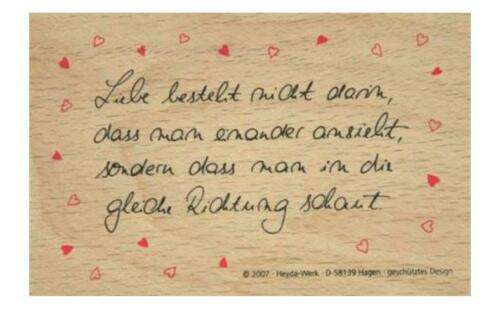 Liebe besteht nicht darin,
dass man einander ansieht,
sondern dass man in die
gleiche Richtung schaut
© 2007 · Heyda-Werk · D-58139 Hagen · geschütztes Design